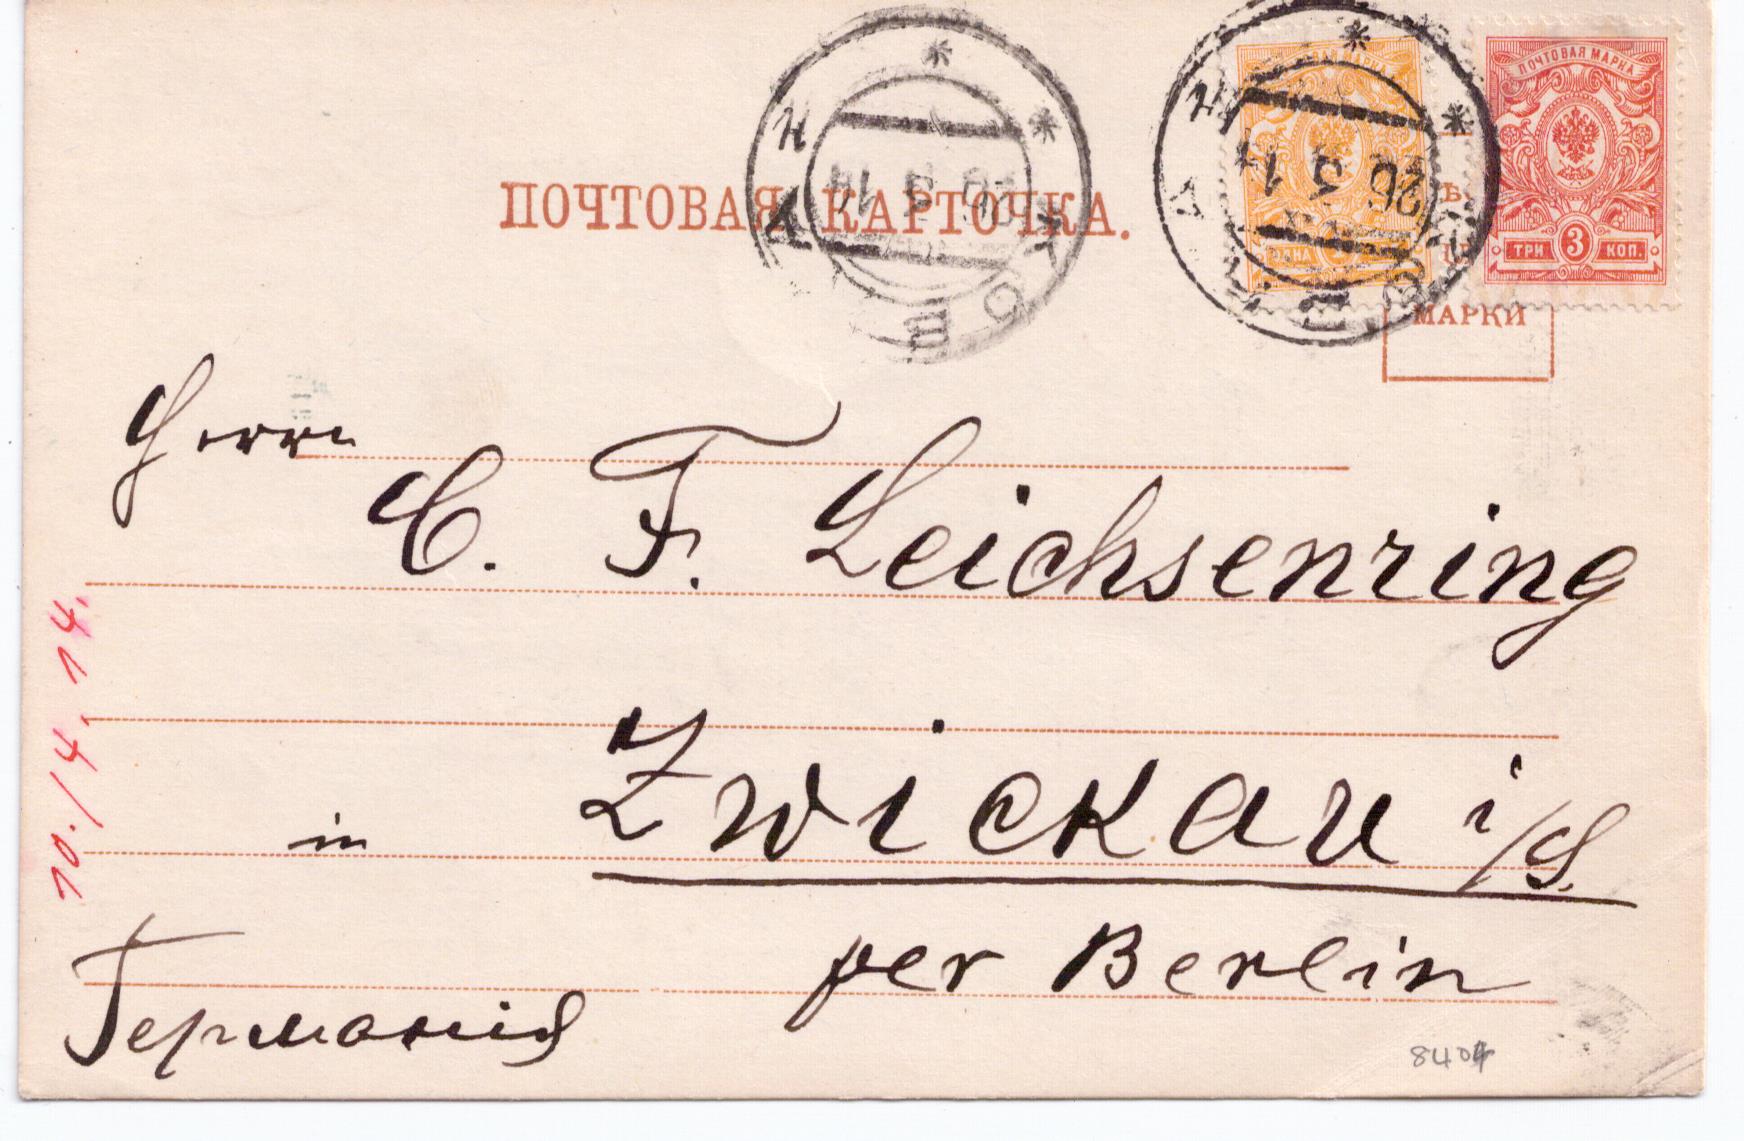 ПОЧТОВАЯ КАРТОЧКА.
ПОЧТОВАЯ МАРКА
ТРИ 3 КОП.
МАРКИ
Herrn
C. F. Leichsenring
in Zwickau i/S.
per Berlin
Германія
10./4. 14.
8404